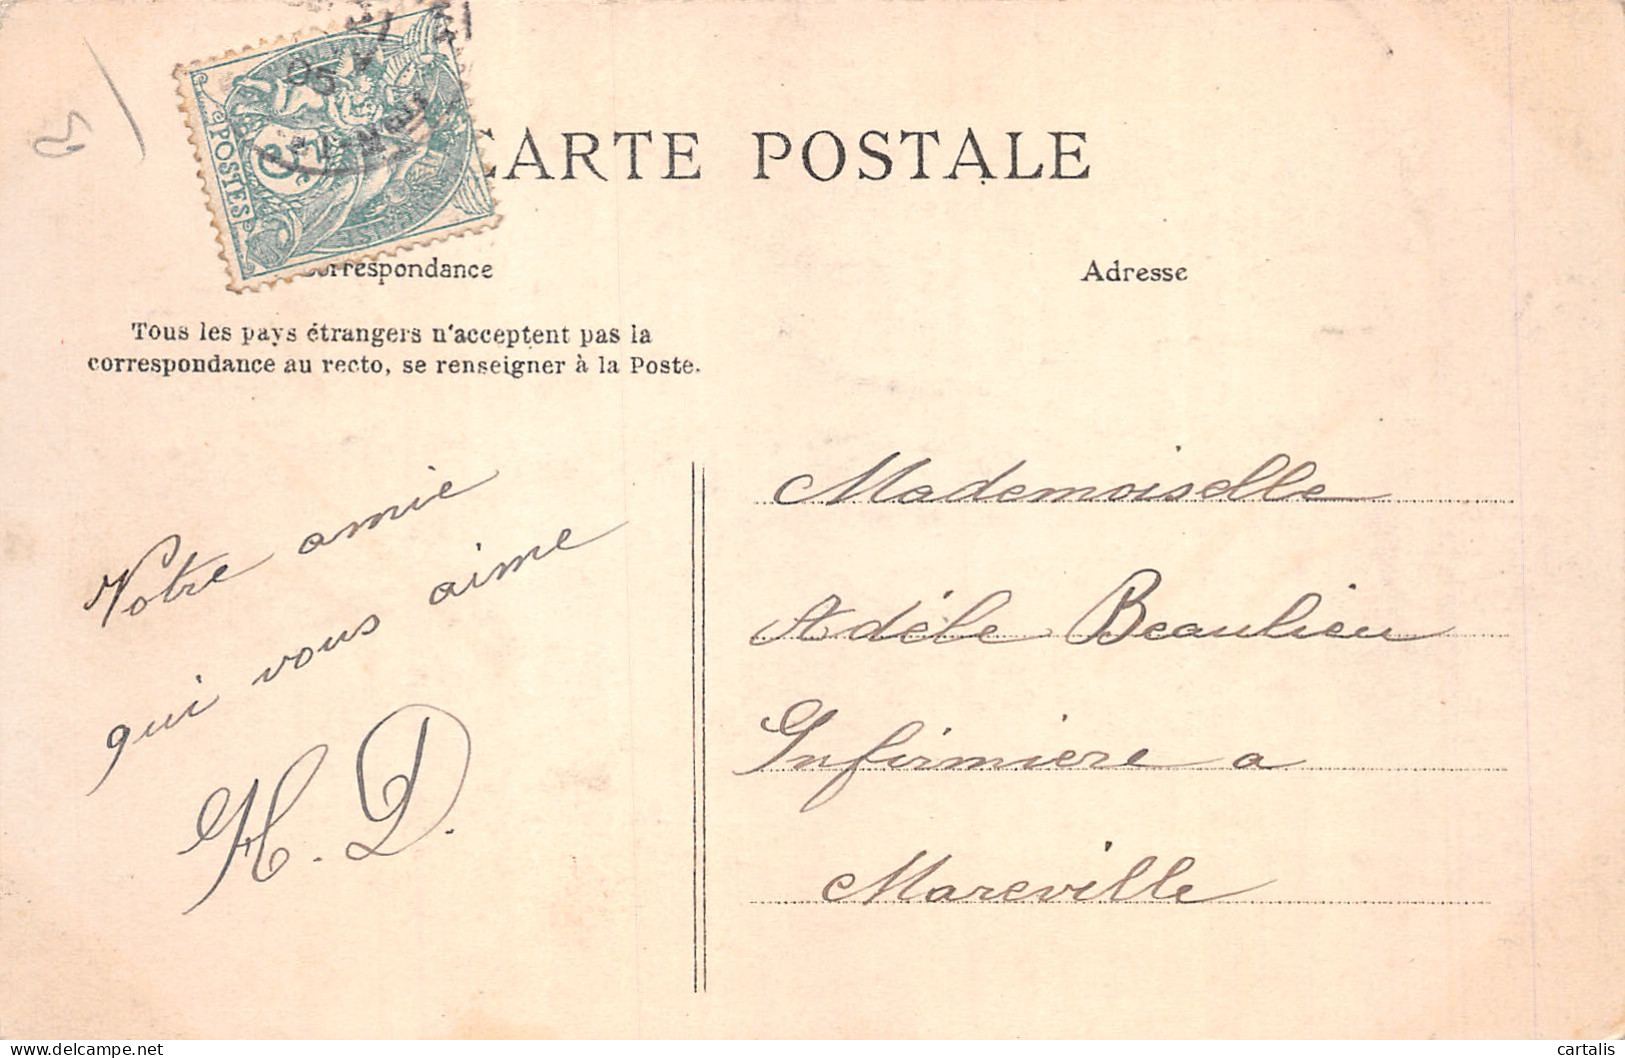 POSTES
5
05
CARTE POSTALE
Correspondance
Adresse
Tous les pays étrangers n'acceptent pas la
correspondance au recto, se renseigner à la Poste.
Votre amie
qui vous aime
H. D.
Mademoiselle
Adèle Beaulieu
Infirmiere a
Mareville
cartalis